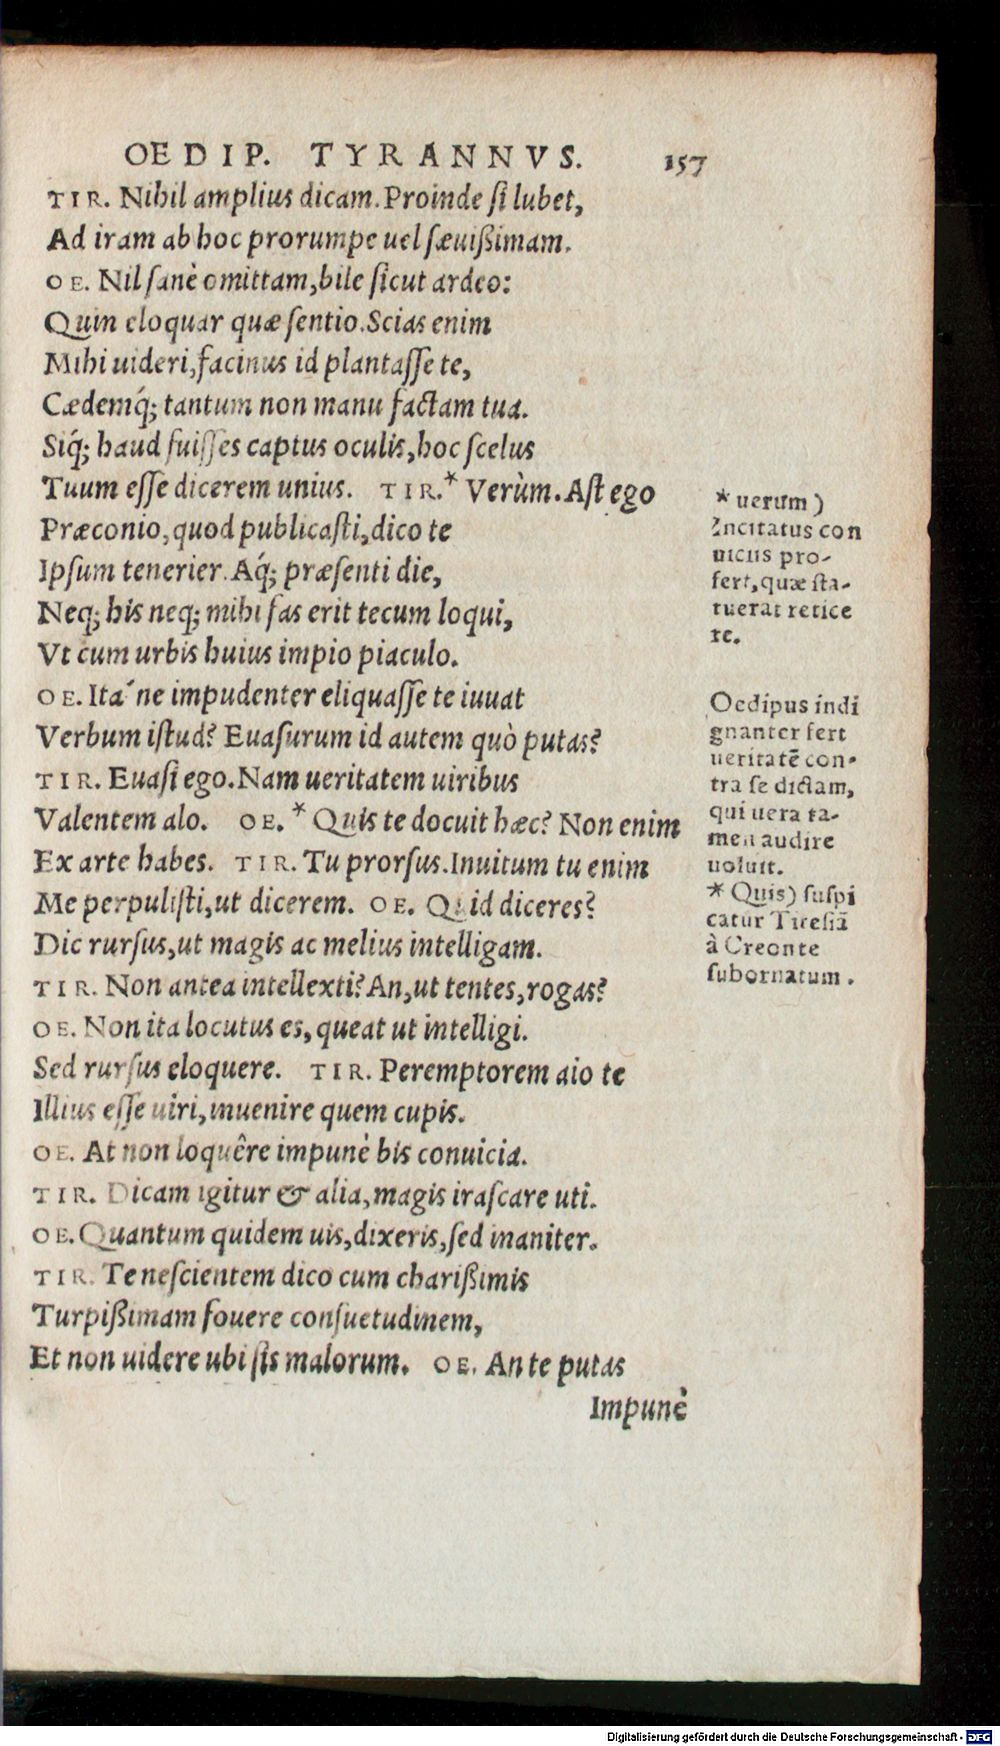 OEDIP. TYRANNVS. 157
TIR. Nihil amplius dicam. Proinde si lubet,
Ad iram ab hoc prorumpe uel sæuißimam.
OE. Nil sanè omittam, bile sicut ardeo:
Quin eloquar quæ sentio. Scias enim
Mihi uideri, facinus id plantasse te,
Cædemq́; tantum non manu factam tua.
Siq́; haud fuisses captus oculis, hoc scelus
Tuum esse dicerem unius. TIR.* Verùm. Ast ego
Præconio, quod publicasti, dico te
Ipsum tenerier. Aq́; præsenti die,
Neq; his neq; mihi fas erit tecum loqui,
Vt cum urbis huius impio piaculo.
OE. Ita´ne impudenter eliquasse te iuuat
Verbum istud? Euasurum id autem quò putas?
TIR. Euasi ego. Nam ueritatem uiribus
Valentem alo. OE.* Quis te docuit hæc? Non enim
Ex arte habes. TIR. Tu prorsus. Inuitum tu enim
Me perpulisti, ut dicerem. OE. Quid diceres?
Dic rursus, ut magis ac melius intelligam.
TIR. Non antea intellexti? An, ut tentes, rogas?
OE. Non ita locutus es, queat ut intelligi.
Sed rursus eloquere. TIR. Peremptorem aio te
Illius esse uiri, inuenire quem cupis.
OE. At non loquêre impunè bis conuicia.
TIR. Dicam igitur & alia, magis irascare uti.
OE. Quantum quidem uis, dixeris, sed inaniter.
TIR. Te nescientem dico cum charißimis
Turpißimam fouere consuetudinem,
Et non uidere ubi sis malorum. OE. An te putas
Impunè
* uerum)
Incitatus con
uiciis pro-
fert, quæ sta-
tuerat retice
re.
Oedipus indi
gnanter fert
ueritatē con-
tra se dictam,
qui uera ta-
men audire
uoluit.
* Quis) suspi
catur Tiresiā
à Creonte
subornatum.
Digitalisierung gefördert durch die Deutsche Forschungsgemeinschaft - DFG